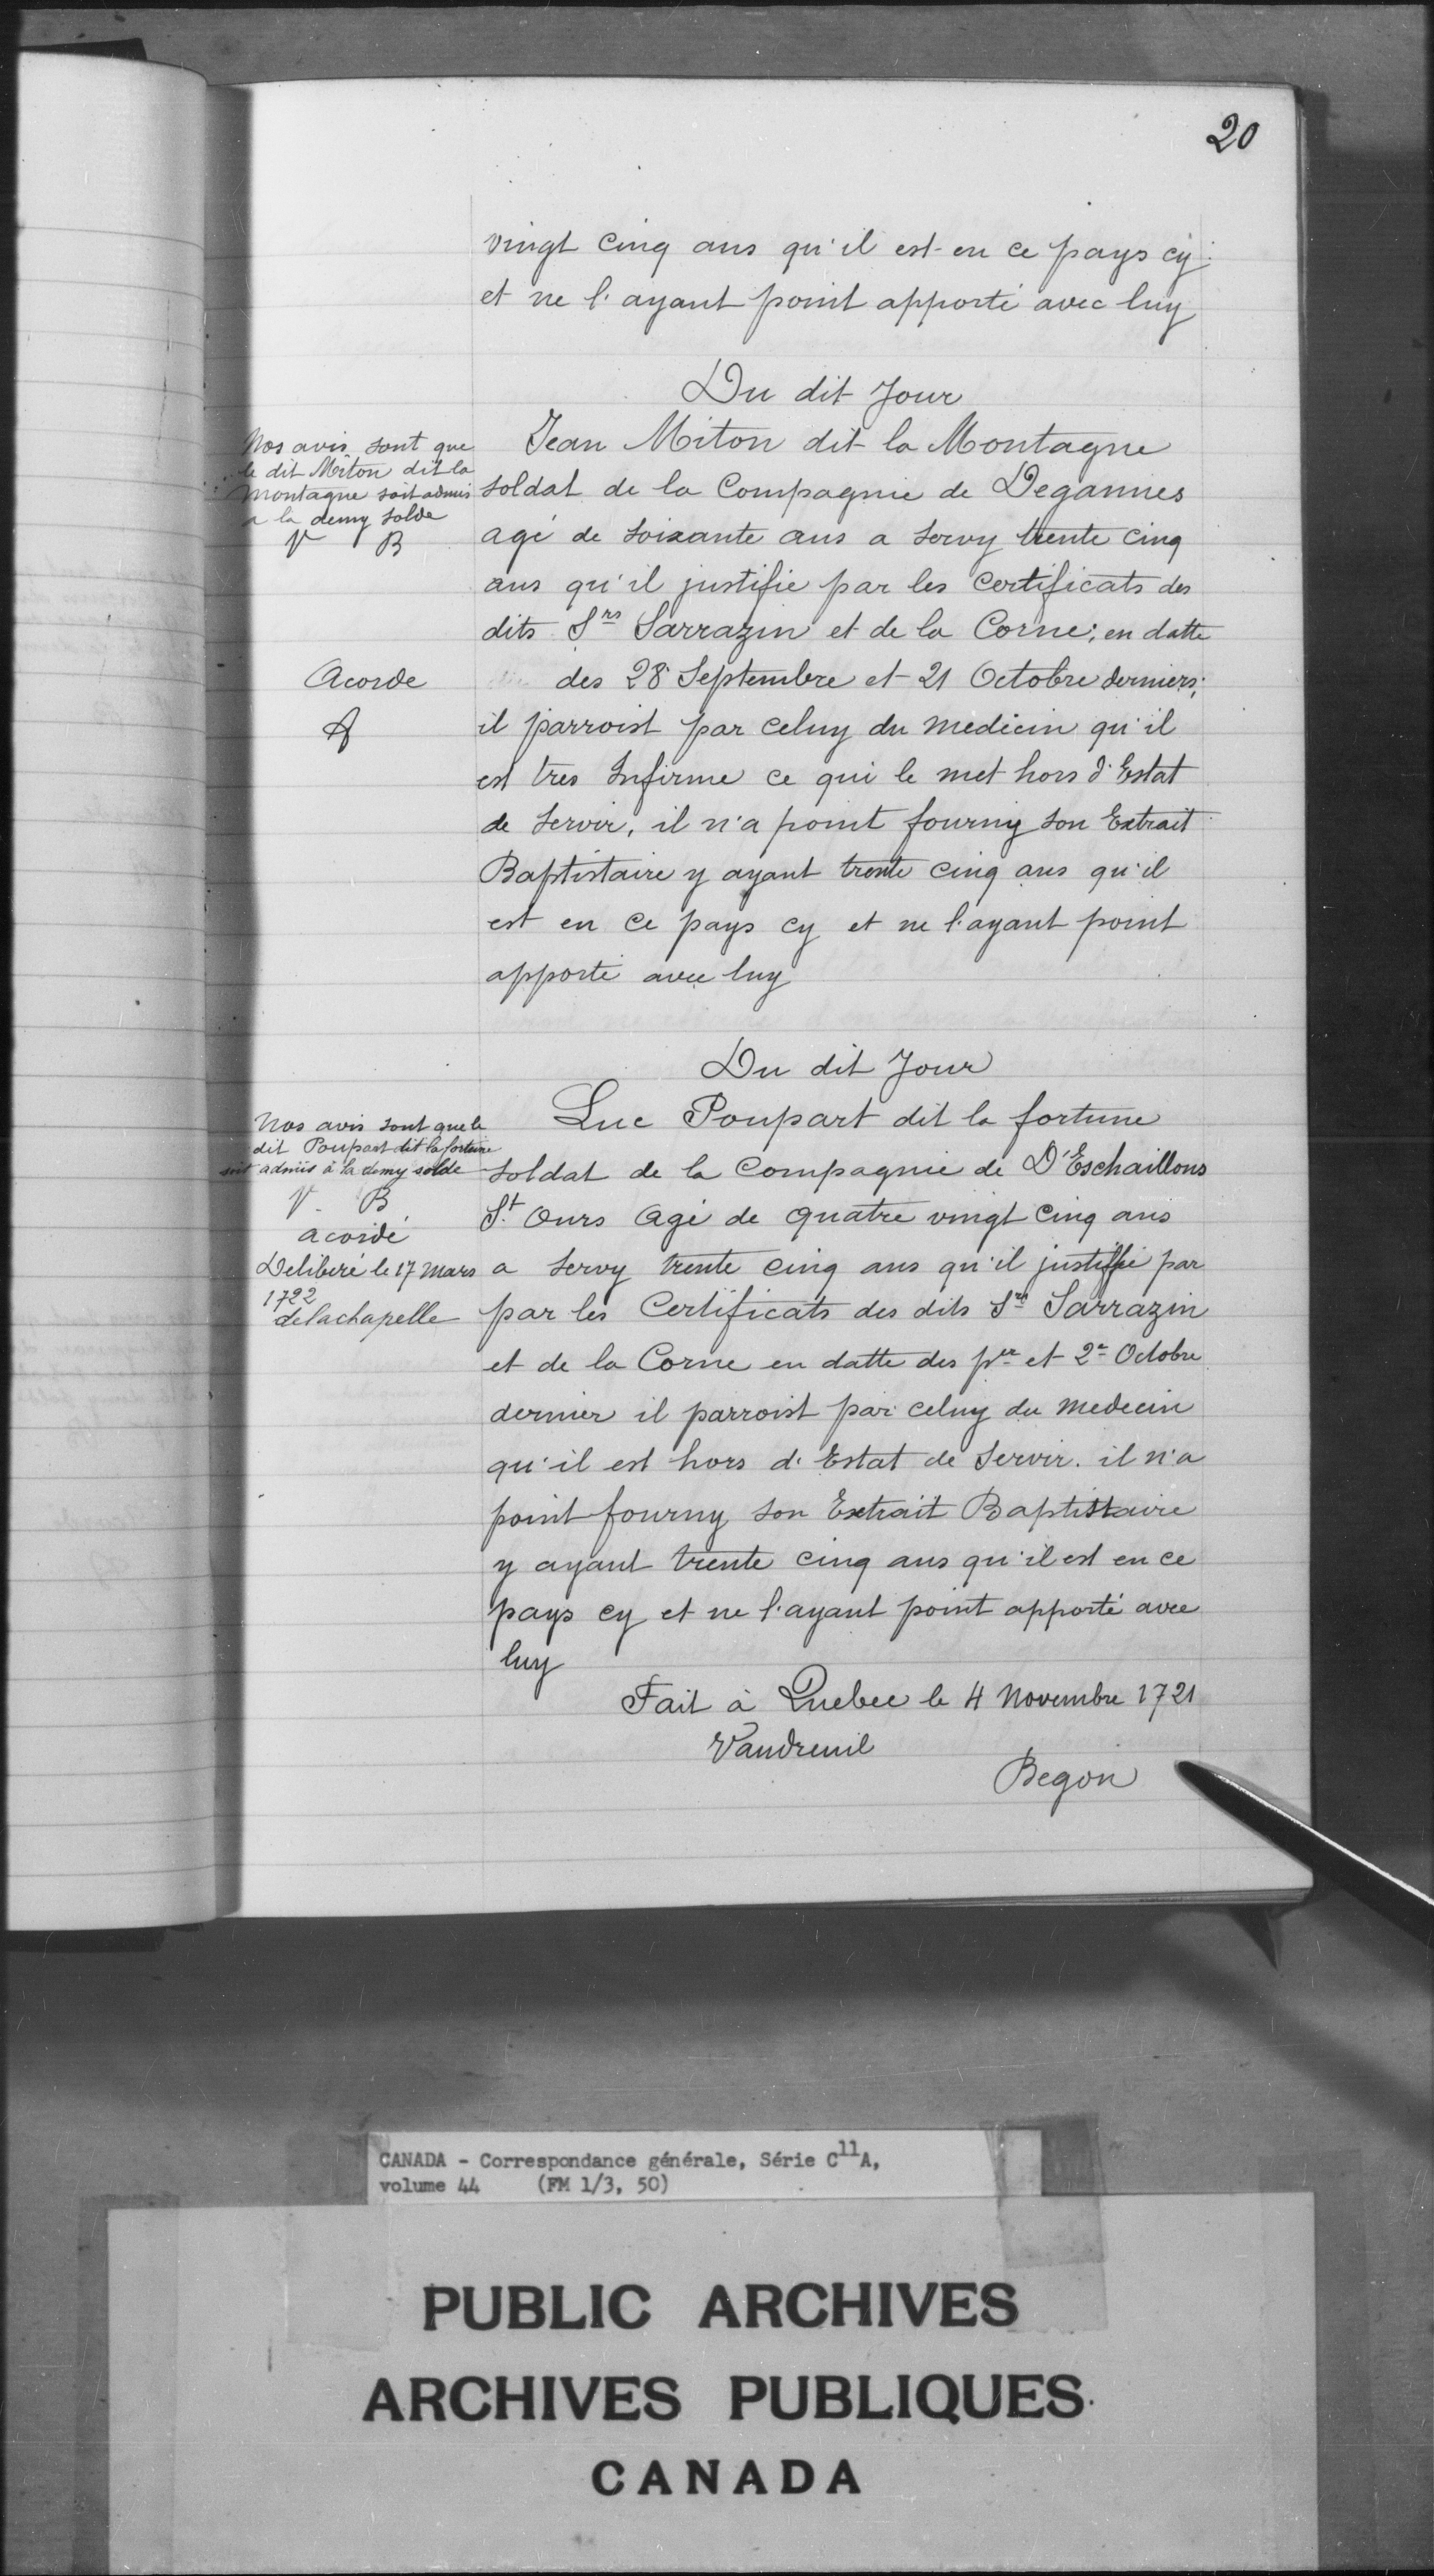 20
vingt cinq ans qu'il est en ce pays cy
et ne l'ayant point apporté avec luy
Du dit Jour
Nos avis sont que
le dit Miton dit la
Montagne soit admis
a la demy solde
V B
Acorde
Jean Miton dit la Montagne
soldat de la Compagnie de Degannes
agé de soixante ans a servy trente cinq
ans qu'il justifie par les Certificats des
dits Srs Sarrazin et de la Corne; en datte
des 28 Septembre et 21 Octobre derniers;
il parroist par celuy du medicin qu'il
est tres Infirme ce qui le met hors d'Estat
de servir, il n'a point fourny son Extrait
Baptistaire y ayant trente cinq ans qu'il
est en ce pays cy et ne l'ayant point
apporté avec luy
Du dit Jour
Nos avis sont que le
dit Poupart dit la fortune
soit admis à la demy solde
V. B
acordé
Deliberé le 17 Mars
1722
delachapelle
Luc Poupart dit la fortune
soldat de la Compagnie de D'Eschaillons
St. Ours Agé de quatre vingt cinq ans
a servy trente cinq ans qu'il justiffie par
par les Certificats des dits Srs Sarrazin
et de la Corne en datte des per et 2e Octobre
dernier il parroist par celuy du medecin
qu'il est hors d'Estat de Servir. il n'a
point fourny son Extrait Baptistaire
y ayant trente cinq ans qu'il est en ce
pays cy et ne l'ayant point apporté avec
luy
Fait à Quebec le 4 Novembre 1721
Vaudreuil
Begon
CANADA - Correspondance générale, Série C11A,
volume 44 (FM 1/3, 50)
PUBLIC ARCHIVES
ARCHIVES PUBLIQUES
CANADA